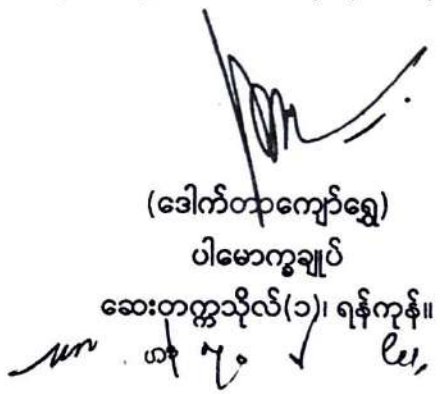 (ဒေါက်တာကျော်ရွှေ)
ပါမောက္ခချုပ်
ဆေးတက္ကသိုလ်(၁)၊ ရန်ကုန်။